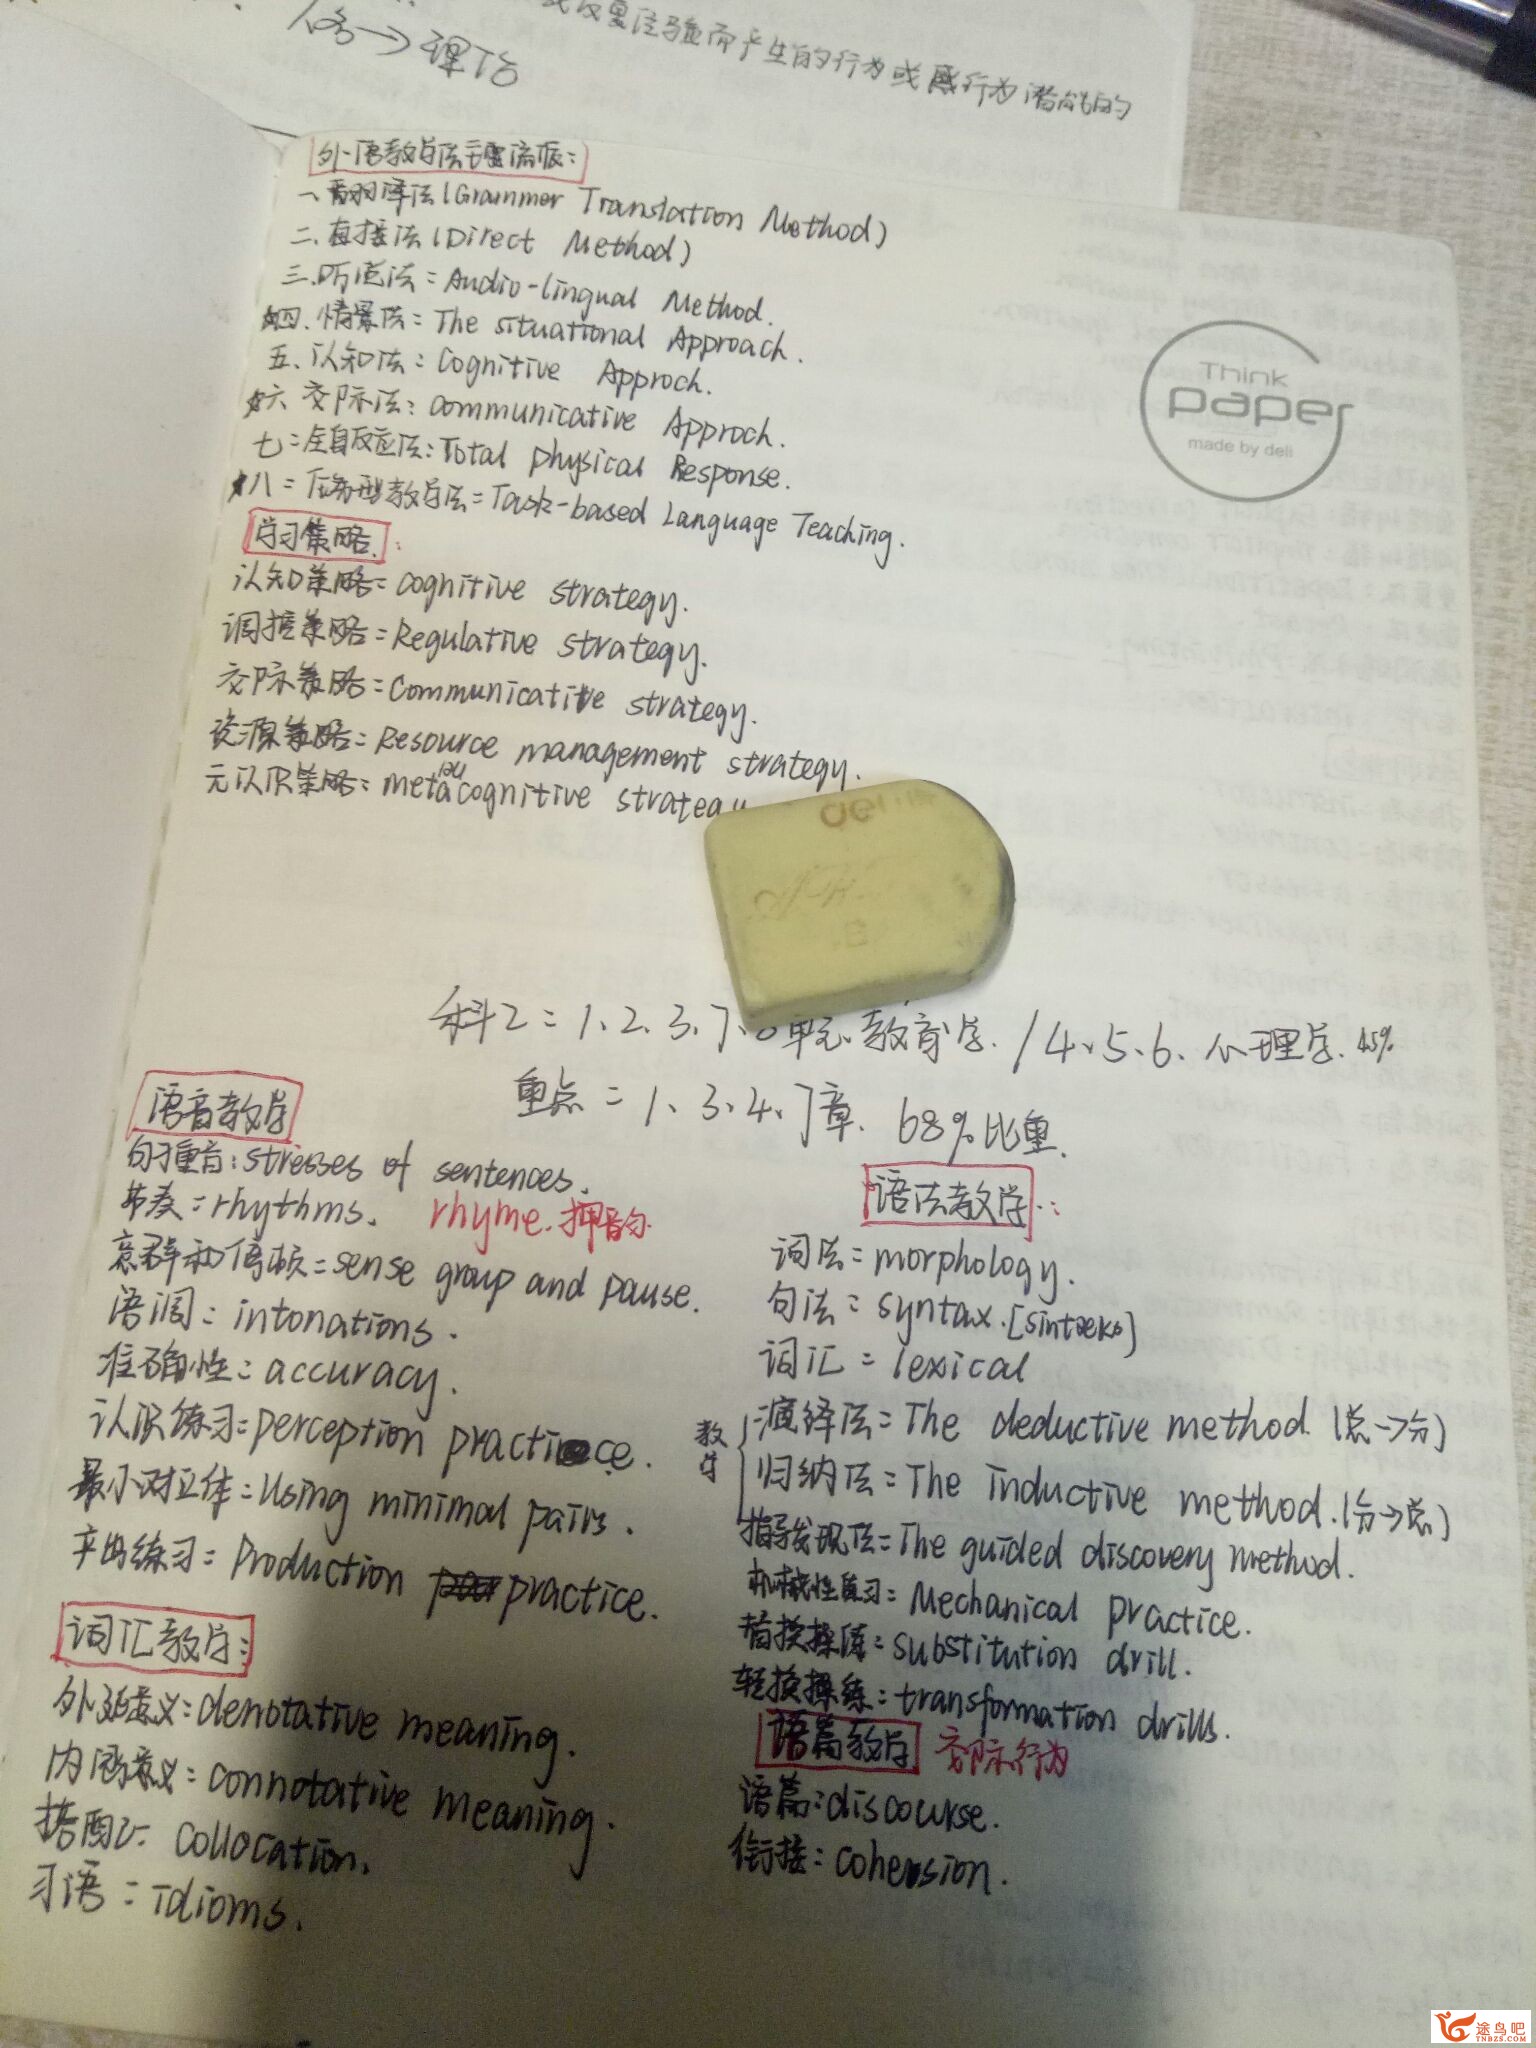 修→理论
复经验而产生的行为或行为潜能的
外语教学法主要流派:
一、翻译法(Grammer Translation Method)
二、直接法(Direct Method)
三、听说法:Audio-lingual Method.
四、情景法:The situational Approach.
五、认知法:Cognitive Approch.
六 交际法:communicative Approch.
七:全身反应法:Total physical Response.
八:任务型教学法:Task-based Language Teaching.
Think
paper
made by deli
学习策略:
认知策略:cognitive strategy.
调控策略:Regulative strategy.
交际策略:Communicative strategy.
资源策略:Resource management strategy.
元认识策略:metacognitive strateg
deli
科2:1、2、3、7、8单元.教育学. / 4、5、6、心理学. 45%
重点:1、3、4、7章. 68%比重.
语音教学
句子重音:stresses of sentences.
节奏:rhythms. rhyme.押韵
意群和停顿:sense group and pause.
语调:intonations.
准确性:accuracy.
认识练习:perception practice.
最小对立体:Using minimal pairs.
产出练习:Production practice.
词汇教学:
外延意义:denotative meaning.
内涵意义:connotative meaning.
搭配: collocation.
习语:idioms.
语法教学:
词法:morphology.
句法:syntax.[sintæks]
词汇:lexical
教学
演绎法:The deductive method.(总→分)
归纳法:The inductive method.(分→总)
指导发现法:The guided discovery method.
机械性练习:Mechanical practice.
替换操练:substitution drill.
转换操练:transformation drills.
语篇教学 交际行为
语篇:discourse.
衔接:cohension.
途鸟吧
TNBZS.COM